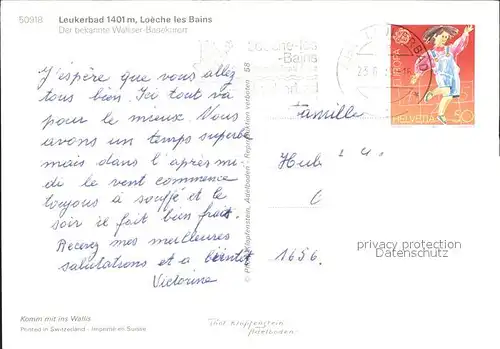 50918
Leukerbad 1401 m, Loèche les Bains
Der bekannte Walliser Badekurort
-Bains
HELVETIA 50
J'éspère que vous allez
tous bien. Ici tout va
pour le mieux. Nous
avons un temps superbe
mais dans l'après mi-
di le vent commence
toujous à souffé et le
soir il fait bien frait.
Recevez mes meilleures
salutations et a bientôt
Victorine
Photo Klopfenstein, Adelboden - Reproduktion verboten 58
Famille
Hub
1656.
privacy protection
Datenschutz
Komm mit ins Wallis
Printed in Switzerland - Imprimé en Suisse
Phot Klopfenstein
Adelboden